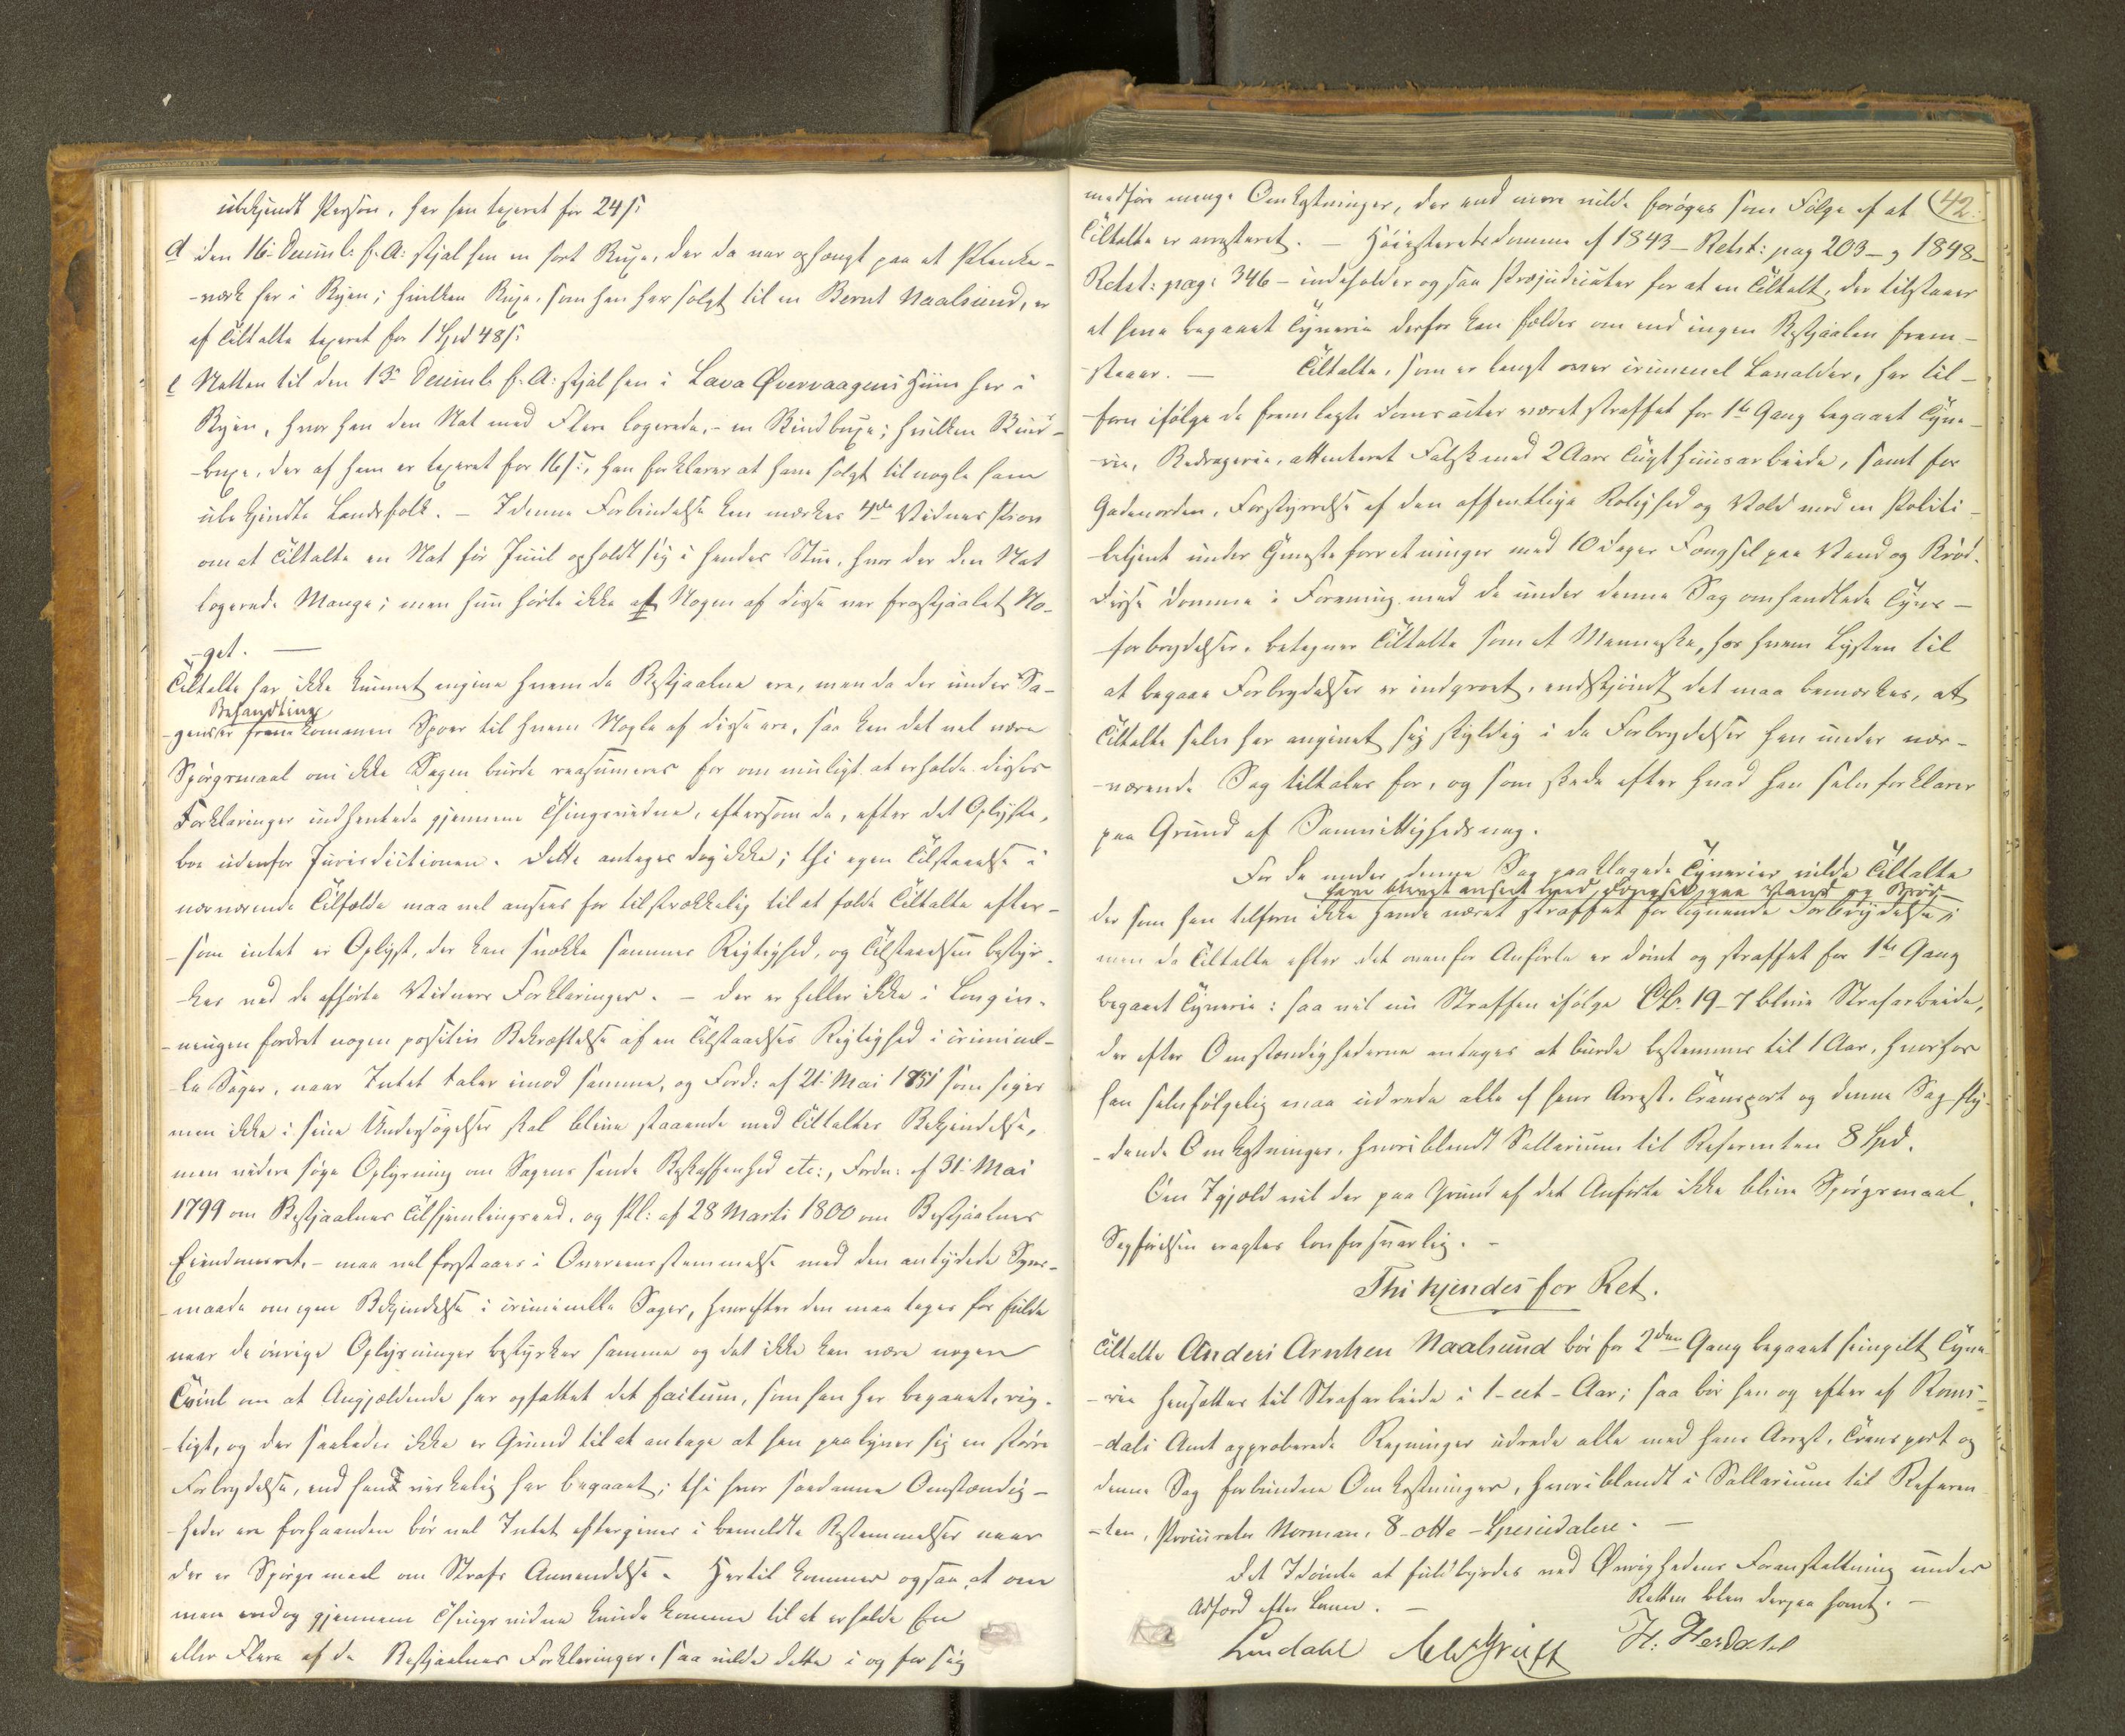 ubekjendt Person, har han taxeret for 24 s:
d den 16de Decemb: f. A: stjal han en sort Buxe, der da var ophængt paa et Planke-
-værk her i Byen; hvilken Buxe, som han har solgt til en Bernt Naalsund, er
af Tiltalte taxeret for 1 Spd 48 s:
e Natten til den 13de Decemb f. A: stjal han i Lava Øvervaagens Huus her i
Byen, hvor han den Nat med Flere logerede, - en Skindbuxe; hvilken Skind-
-buxe, der af ham er taxeret for 16 s:, han forklarer at have solgt til nogle ham
ubekjendte Landsfolk. - I denne Forbindelse kan mærkes 4de Vidnes Prov
om at Tiltalte en Nat før Juul opholdt sig i hendes Stue, hvor der den Nat
logerede Mange; men hun hørte ikke at Nogen af disse var frastjaalet No-
-get. -
Tiltalte har ikke kunnet angive hvem de Bestjaalne ere, men da der under Sa-
Behandling
-gens er fremkommen Spor til hvem Nogle af disse ere, saa kan det vel være
Spørgsmaal om ikke Sagen burde reasumeres for om muligt at erholde disses
Forklaringer indhentede gjennem Thingsvidne, eftersom de, efter det Oplyste,
boe udenfor Jurisdictionen. Dette antages dog ikke; thi egen Tilstaaelse i
nærværende Tilfælde maa vel ansees for tilstrækkelig til at fælde Tiltalte efter-
-som intet er Oplyst, der kan svække sammes Rigtighed, og Tilstaaelsen bestyr-
-kes ved de afhørte Vidners Forklaringer. - Der er heller ikke i Lovgiv-
-ningen fordret nogen positiv Bekræftelse af en Tilstaaelses Rigtighed i criminel-
-le Sager, naar Intet taler imod samme, og Ford: af 21de Mai 1751 som siger
man ikke i sine Undersøgelser skal blive staaende med Tiltaltes Bekjendelse,
men videre søge Oplysning om Sagens sande Beskaffenhed etc:, Fordn: af 31te Mai
1799 om Bestjaalnes Tilhjemlingseed, og Pl: af 28 Marti 1800 om Bestjaalnes
Eiendomsret, - maa vel forstaaes i Overeensstemmelse med den antydede Syns-
-maade om egen Bekjendelse i criminelle Sager, hvorefter den maa tages for fulde
naar de øvrige Oplysninger bestyrker samme og det ikke kan være nogen
Tvivl om at Angjældende har opfattet det factum, som han har begaaet, rig-
-tigt, og der saaledes ikke er Grund til at antage at han paalyver sig en større
Forbrydelse, end han virkelig har begaaet; thi hvor saadanne Omstændig-
-heder ere forhaanden bør vel Intet eftergives i bemeldte Bestemmelser naar
der er Spørgsmaal om Strafs Anvendelse. Hertil kommer ogsaa, at om
man endog gjennem Thingsvidne kunde komme til at erholde En
eller Flere af de Bestjaalnes Forklaringer, saa vilde dette i og for sig
42.
medføre mange Omkostninger, der end mere vilde forøges som Følge af at
Tiltalte er arresteret. - Høiesteretsdomme af 1843 - Retst: pag 203 - og 1848 -
Retst: pag: 346 - indeholder ogsaa Præjudicater for at en Tiltalt, der tilstaaer
at have begaaet Tyverie derfor kan fældes om end ingen Bestjaalen frem-
-staaer. - Tiltalte, som er langt over criminel Lavalder, har til-
-forn ifølge de fremlagte Domsacter været straffet for 1te Gang begaaet Tyve-
-rie, Bedragerie, attenteret Falsk med 2 Aars Tugthuusarbeide, samt for
Gadeuorden, Forstyrrelse af den offentlige Rolighed og Vold mod en Politi-
betjent under Tjenesteforretninger med 10 Dages Fængsel paa Vand og Brød.
Disse Domme i Forening med de under denne Sag omhandlede Tyvs-
-forbrydelser, betegner Tiltalte som et Menneske, hos hvem Lysten til
at begaae Forbrydelser er indgroet, endskjøndt det maa bemærkes, at
Tiltalte selv har angivet sig skyldig i de Forbrydelser han under nær-
-værende Sag tiltales for, og som skede efter hvad han selv forklarer
paa Grund af Samvittighedsnag.
For de under denne Sag paaklagede Tyverier vilde Tiltalte
have blevet anseet med Fængsel paa Vand og Brød
der som han tilforn ikke havde været straffet for lignende Forbrydelse;
men da Tiltalte efter det ovenfor Anførte er dømt og straffet for 1te Gang
begaaet Tyverie: saa vil nu Straffen ifølge Ctr. 19-7 blive Strafarbeide,
der efter Omstændighederne antages at burde bestemmes til 1 Aar, hvorhos
han selvfølgelig maa udrede alle af hans Arrest, Transport og denne Sag fly-
-dende Omkostninger, hvoriblandt Sallarium til Referenten 8 Spd.
Om Igjæld vil der paa Grund af det Anførte ikke blive Spørgsmaal.
Sagførelsen eragtes lovforsvarlig. -
Thi kjendes for Ret.
Tiltalte Anders Arntsen Naalsund bør for 2den Gang begaaet simpelt Tyve-
-rie hensættes til Strafarbeide i 1 - eet - Aar; saa bør han og efter af Roms-
-dals Amt approberede Regninger udrede alle med hans Arrest, Transport og
denne Sag forbundne Omkostninger, hvoriblandt i Sallarium til Referen-
-ten, Procurator Norman, 8 - otte - Speciedalere. -
Det Idømte at fuldbyrdes ved Øvrighedens Foranstaltning under
Adfærd efter Loven. - Retten blev derpaa hævet. -
Lindahl H. Herdahl